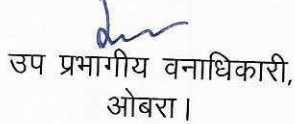 उप प्रभागीय वनाधिकारी,
ओबरा।